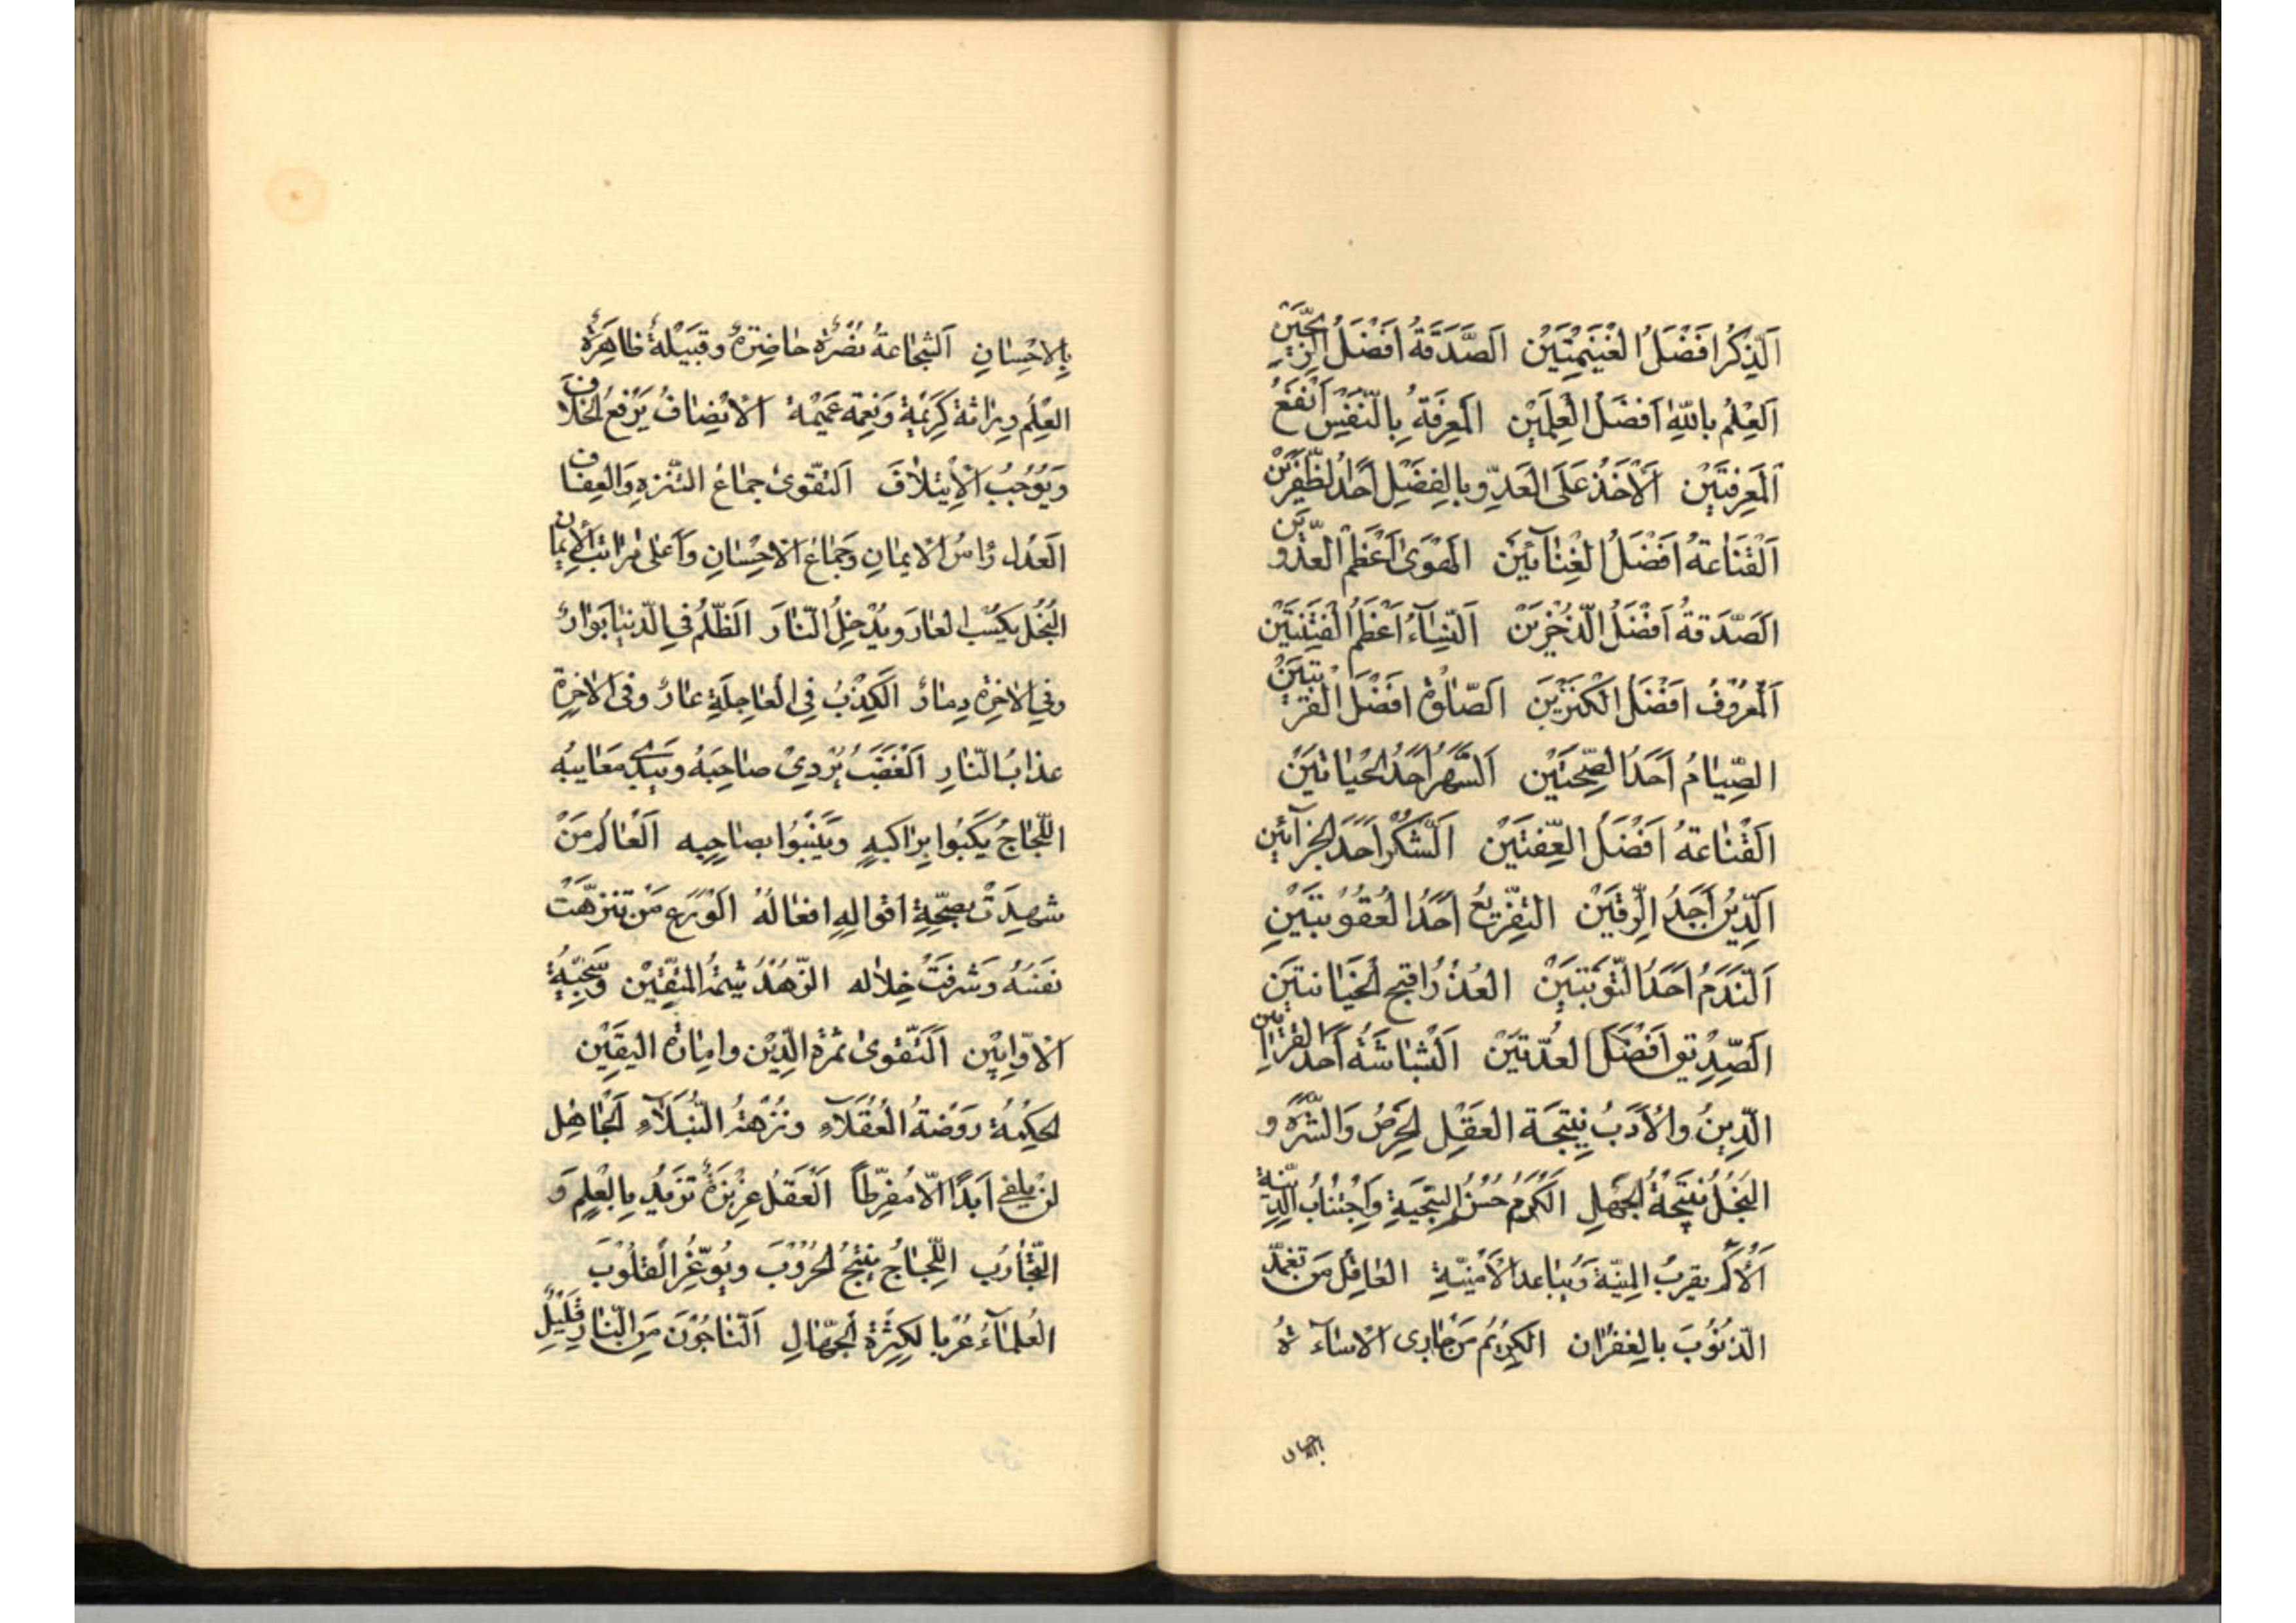 اَلذِّكْرُ اَفْضَلُ الْغَنيمَتَيْنِ اَلصَّدَقَةُ اَفْضَلُ الرِّبْحَيْنِ
اَلْعِلْمُ بِاللّهِ اَفْضَلُ الْعِلْمَيْنِ اَلْمَعْرِفَةُ بِالنَّفْسِ اَنْفَعُ
اَلْمَعْرِفَتَيْنِ اَلْاَخْذُ عَلَى الْعَدُوِّ بِالْفَضْلِ اَحَدُ الظَّفَرَيْنِ
اَلْقَنَاعَةُ اَفْضَلُ الْغِنَائَيْنِ اَلْهَوٰى اَعْظَمُ الْعَدُوَّيْنِ
اَلصَّدَقَةُ اَفْضَلُ الذُّخْرَيْنِ اَلنِّسَآءُ اَعْظَمُ الْفِتْنَتَيْنِ
اَلْمَعْرُوفُ اَفْضَلُ الْكَنْزَيْنِ اَلصَّلٰوةُ اَفْضَلُ الْقُرْبَتَيْنِ
الصِّيَامُ اَحَدُ الصِّحَّتَيْنِ اَلسَّهَرُ اَحَدُ الْحَيَاتَيْنِ
اَلْقَنَاعَةُ اَفْضَلُ الْعِفَّتَيْنِ اَلشُّكْرُ اَحَدُ الْجَزَآئَيْنِ
اَلدَّيْنُ اَحَدُ الرِّقَّيْنِ التَّقْريعُ اَحَدُ الْعُقُوبَتَيْنِ
اَلنَّدَمُ اَحَدُ التَّوْبَتَيْنِ الْغَدْرُ اَقْبَحُ الْخِيَانَتَيْنِ
اَلصَّدِيقُ اَفْضَلُ الْعُدَّتَيْنِ اَلْبَشَاشَةُ اَحَدُ الْقِرَائَيْنِ
الدِّينُ وَالْاَدَبُ نَتِيجَةُ الْعَقْلِ الْحِرْصُ وَالشَّرَهُ وَ
الْبُخْلُ نَتِيجَةُ الْجَهْلِ اَلْكَرَمُ حُسْنُ السَّجِيَّةِ وَاجْتِنَابُ الدَّنِيَّةِ
يُقَرِّبُ الْمَنِيَّةَ وَيُبَاعِدُ الْاُمْنِيَّةَ الْعَاقِلُ مَنْ تَغَمَّدَ
الذُّنُوبَ بِالْغُفْرَانِ الْكَرِيمُ مَنْ جَازَى الْاِسَآءَةَ
بالاحسان
بِالْاِحْسَانِ اَلشَّجَاعَةُ نُصْرَةٌ حَاضِرَةٌ وَقَبِيلَةٌ ظَاهِرَةٌ
الْعِلْمُ وِرَاثَةٌ كَرِيمَةٌ وَنِعْمَةٌ عَمِيمَةٌ الْاِنْصَافُ يَرْفَعُ الْخِلَافَ
وَيُوجِبُ الْاِيْتِلَافَ اَلتَّقْوٰى جِمَاعُ التَّنَزُّهِ وَالْعِفَافِ
الْعَدْلُ رَاْسُ الْاِيمَانِ وَجِمَاعُ الْاِحْسَانِ وَاَعْلٰى مَرَاتِبِ الْاِيمَانِ
الْبُخْلُ يَكْسِبُ الْعَارَ وَيُدْخِلُ النَّارَ اَلظُّلْمُ فِي الدُّنْيَا بَوَارٌ
وَفِي الْاٰخِرَةِ دِمَارٌ اَلْكَذِبُ فِي الْعَاجِلَةِ عَارٌ وَفِي الْاٰخِرَةِ
عَذَابُ النَّارِ اَلْغَضَبُ يُرْدِي صَاحِبَهُ وَيُبْدِي مَعَايِبَهُ
اللَّجَاجُ يَكْبُوا بِرَاكِبِهِ وَيَنْبُوا بِصَاحِبِهِ اَلْعَالِمُ مَنْ
شَهِدَتْ بِصِحَّةِ اَقْوَالِهِ اَفْعَالُهُ الْوَرَعُ مَنْ تَنَزَّهَتْ
نَفْسُهُ وَشَرُفَتْ خِلَالُهُ الزُّهْدُ شِيمَةُ الْمُتَّقِينَ وَسَجِيَّةُ
الْاَوَّابِينَ اَلتَّقْوٰى ثَمَرَةُ الدِّينِ وَامَارَةُ الْيَقِينِ
الْحِكْمَةُ رَوْضَةُ الْعُقَلَآءِ وَنُزْهَةُ النُّبَلَآءِ اَلْجَاهِلُ
لَنْ يُلْفٰى اَبَدًا اِلَّا مُفَرِّطًا اَلْعَقْلُ غَرِيزَةٌ تَزِيدُ بِالْعِلْمِ وَ
التَّجَارُبِ اللَّجَاجُ يُنْتِجُ الْحُرُوبَ وَيُوَغِّرُ الْقُلُوبَ
الْعُلَمَآءُ غُرَبَا لِكَثْرَةِ الْجُهَّالِ اَلنَّاجُونَ مِنَ النَّارِ قَلِيلٌ